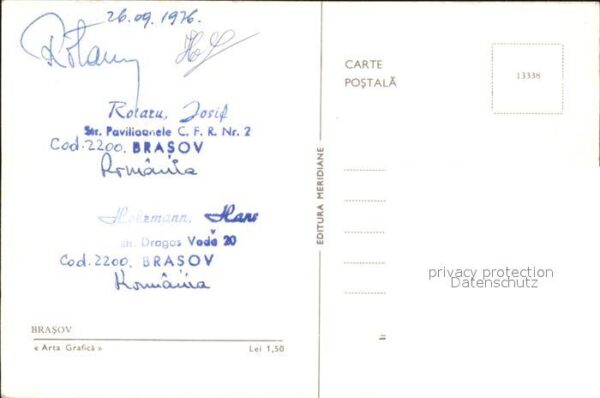 26.09.1976.
Rotaru
Rotaru, Josif
Str. Pavilioanele C. F. R. Nr. 2
Cod. 2200, BRAȘOV
România
Holzmann, Hans
str. Dragoș Vodă 20
Cod. 2200, BRAȘOV
România
BRAȘOV
« Arta Grafică »
Lei 1,50
EDITURA MERIDIANE
CARTE
POȘTALĂ
13338
privacy protection
Datenschutz